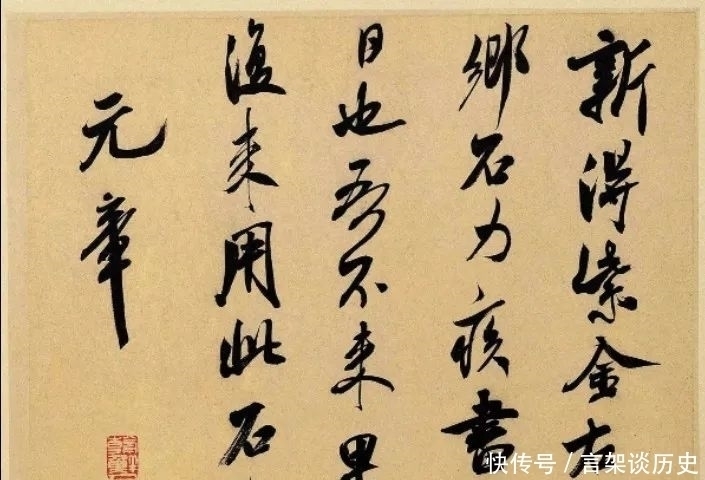 新得紫金右
鄉石力疾書
日也吾不来果
復来用此石
元章
快传号 / 言架谈历史